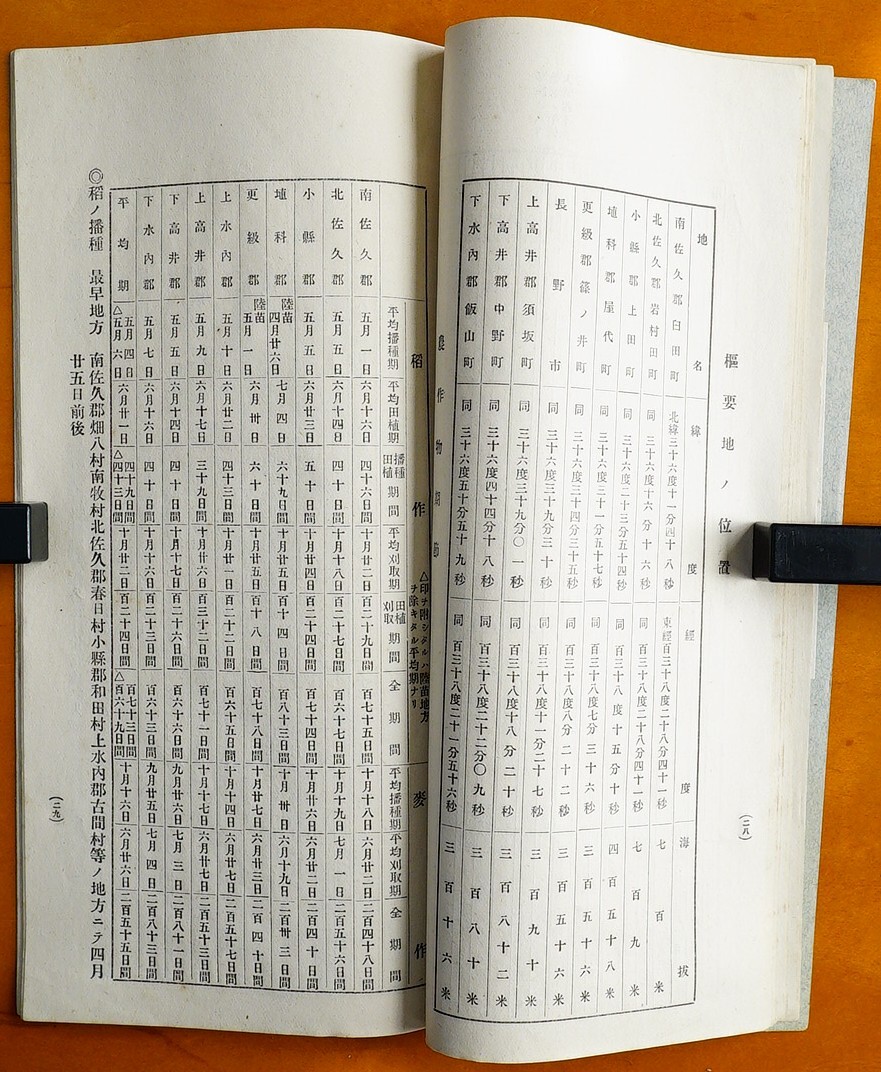 樞要地ノ位置
(二八)
地名 緯度 經度 海拔
南佐久郡臼田町 北緯三十六度十一分四十八秒 東經百三十八度二十八分四十一秒 七百米
北佐久郡岩村田町 同三十六度十六分十六秒 同百三十八度二十八分四十一秒 七百九米
小縣郡上田町 同三十六度二十三分五十四秒 同百三十八度十五分十秒 四百五十八米
埴科郡屋代町 同三十六度三十一分五十七秒 同百三十八度七分三十六秒 三百五十六米
更級郡篠ノ井町 同三十六度三十四分三十五秒 同百三十八度八分二十二秒 三百五十六米
長野市 同三十六度三十九分三十秒 同百三十八度十一分二十七秒 三百九十米
上高井郡須坂町 同三十六度三十九分〇一秒 同百三十八度十八分二十秒 三百八十二米
下高井郡中野町 同三十六度四十四分十八秒 同百三十八度二十二分〇九秒 三百八十米
下水內郡飯山町 同三十六度五十分五十九秒 同百三十八度二十一分五十六秒 三百十六米
農作物期節
△印ヲ附シタルハ陸苗地方
ヲ除キタル平均期ナリ
稻作 麥作
平均播種期 平均田植期 播種田植期間 平均刈取期 田植刈取期間 全期間 平均播種期 平均刈取期 全期間
南佐久郡 五月一日 六月十六日 四十六日間 十月廿二日 百二十九日間 百七十五日間 十月十八日 六月廿二日 二百四十八日間
北佐久郡 五月五日 六月十四日 四十日間 十月十八日 百二十七日間 百六十七日間 十月十九日 七月一日 二百五十六日間
小縣郡 五月五日 六月廿三日 五十日間 十月廿四日 百二十四日間 百七十四日間 十月廿六日 六月廿二日 二百四十日間
埴科郡 陸苗四月廿六日 七月四日 六十九日間 十月廿五日 百十四日間 百八十三日間 十月卅日 六月十九日 二百卅三日間
更級郡 陸苗五月一日 六月卅日 六十日間 十月廿五日 百十八日間 百七十八日間 十月廿七日 六月廿三日 二百四十日間
上水內郡 五月十日 六月廿二日 四十三日間 十月廿一日 百二十二日間 百六十五日間 十月十四日 六月廿七日 二百五十七日間
上高井郡 五月九日 六月十七日 三十九日間 十月廿六日 百三十二日間 百七十一日間 十月十七日 六月廿七日 二百五十三日間
下高井郡 五月五日 六月十四日 四十日間 十月十七日 百二十六日間 百六十六日間 九月廿六日 七月三日 二百八十一日間
下水內郡 五月七日 六月十六日 四十日間 十月十六日 百二十三日間 百六十三日間 九月廿五日 七月四日 二百八十三日間
平均期 五月四日 △五月六日 六月廿一日 四十九日間 △四十三日間 十月廿二日 百二十四日間 百七十三日間 △百六十九日間 十月十六日 六月廿六日 二百五十五日間
◎稻ノ播種 最早地方 南佐久郡畑八村南牧村北佐久郡春日村小縣郡和田村上水內郡古間村等ノ地方ニテ四月
廿五日前後
(二九)